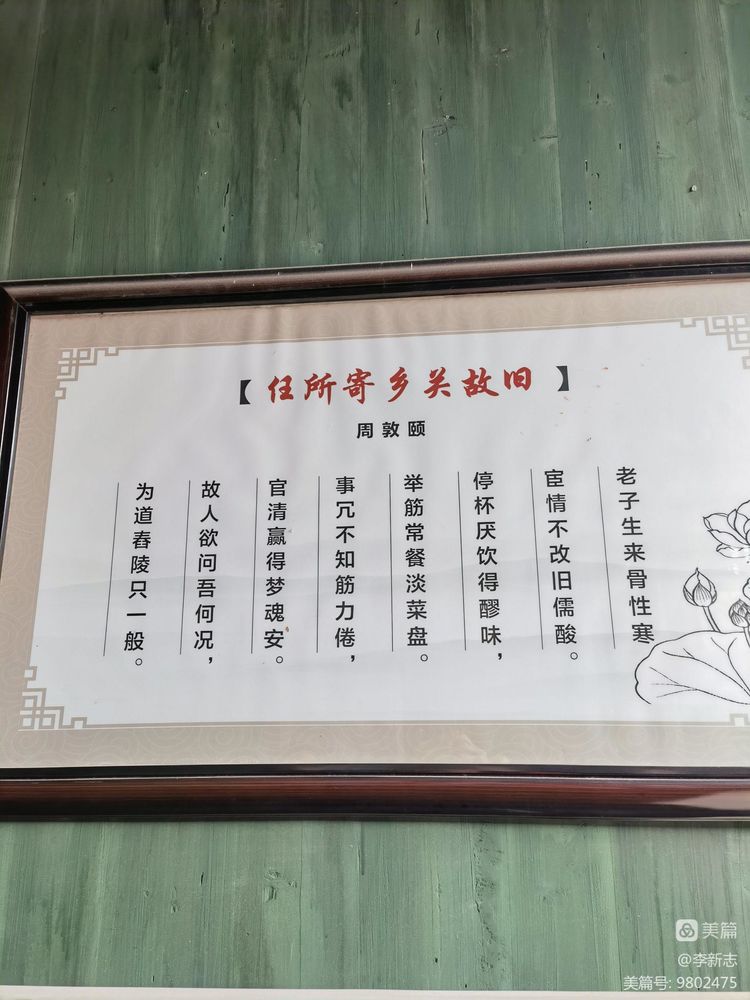 【任所寄乡关故旧】
周敦颐
老子生来骨性寒
宦情不改旧儒酸。
停杯厌饮得醪味，
举筋常餐淡菜盘。
事冗不知筋力倦，
官清赢得梦魂安。
故人欲问吾何况，
为道舂陵只一般。
美篇
@李新志
美篇号: 9802475